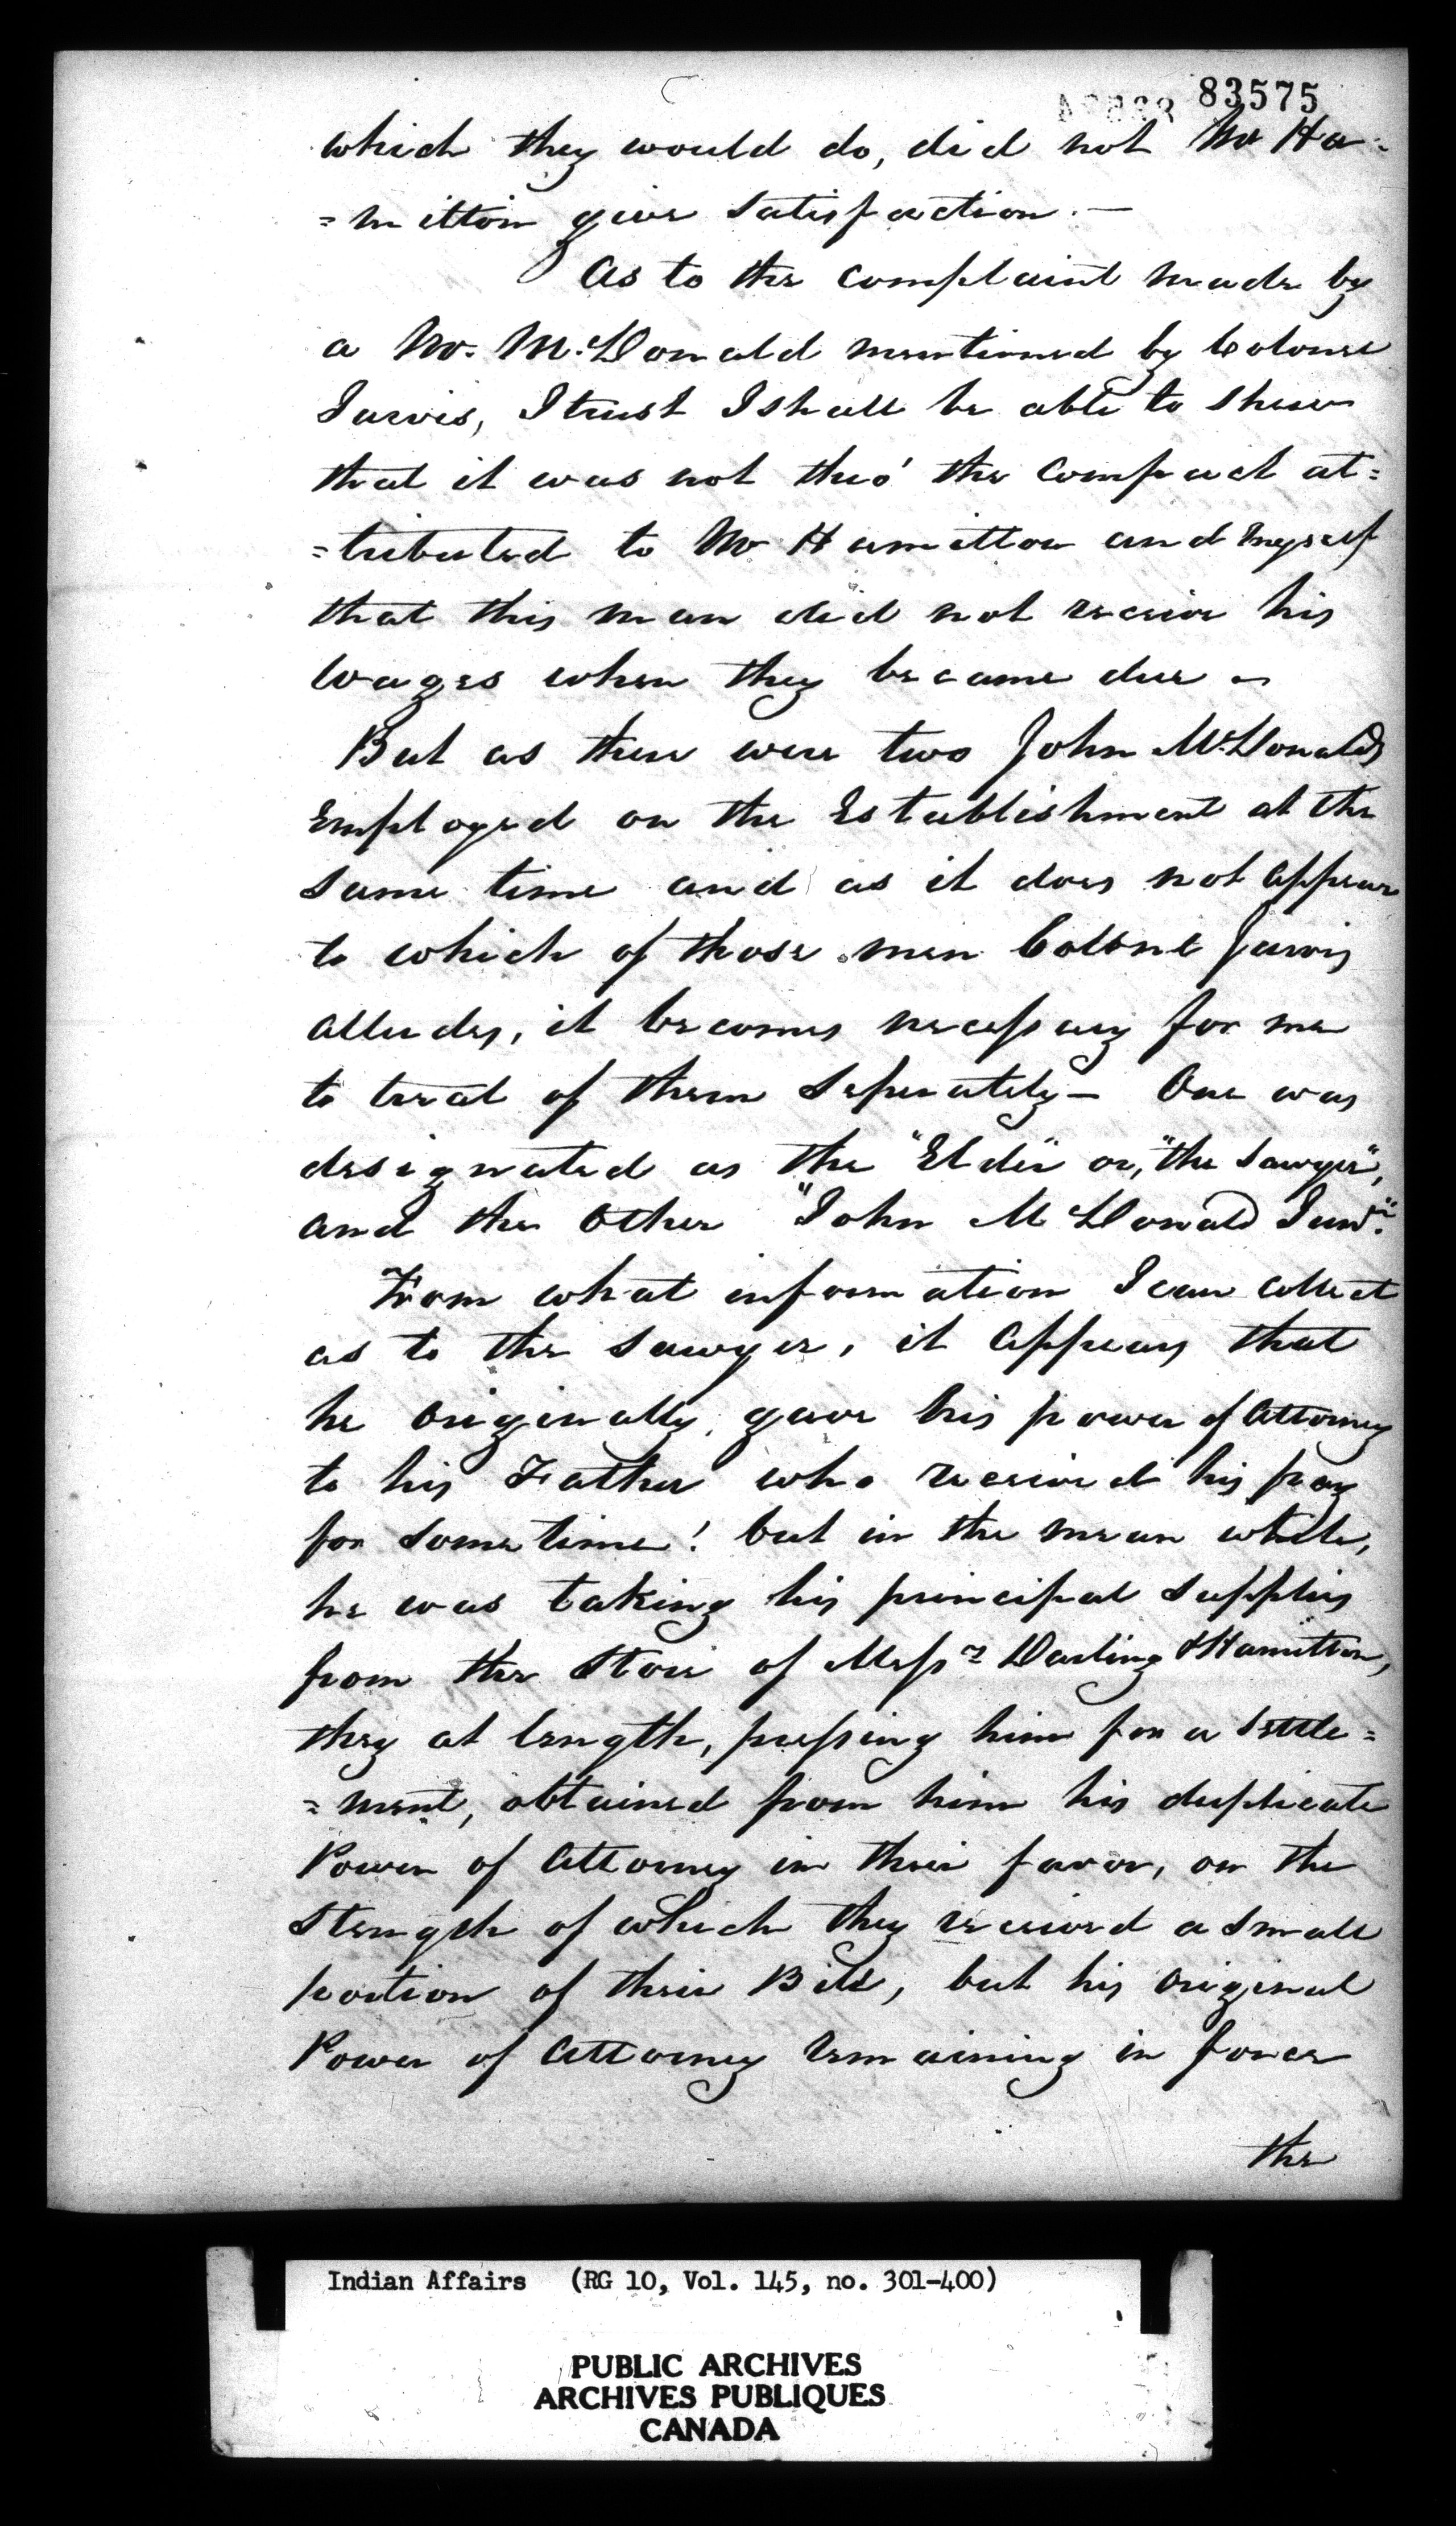 83575
which they would do, did not Mr Ha=
=milton give satisfaction. —
As to the complaint made by
a Mr. McDonald mentioned by Colonel
Jarvis, I trust I shall be able to shew
that it was not thro' the compact at=
=tributed to Mr Hamilton and myself
that this man did not receive his
wages when they became due —
But as there were two John McDonalds
employed on the Establishment at the
same time and as it does not appear
to which of those men Colonel Jarvis
alludes, it becomes necessary for me
to treat of them seperately — One was
designated as the "Elder" or, "the Sawyer",
and the other "John McDonald Junr."
From what information I can collect
as to the Sawyer, it appears that
he originally gave his power of Attorney
to his Father who received his pay
for some time! but in the mean while,
he was taking his principal supplies
from the Store of Messrs Darling & Hamilton,
they at length, pressing him for a settle=
=ment, obtained from him his duplicate
Power of Attorney in their favor, on the
strength of which they received a small
portion of their Bill, but his original
Power of Attorney remaining in force
the
Indian Affairs (RG 10, Vol. 145, no. 301-400)
PUBLIC ARCHIVES
ARCHIVES PUBLIQUES
CANADA